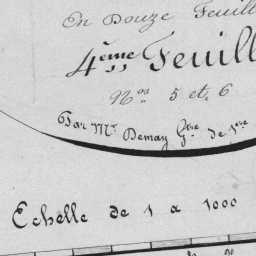 En Douze Feuill
4ème Feuill
Nos 5 et 6
Par Mr Demay Gtre de 1ere
Echelle de 1 a 1000